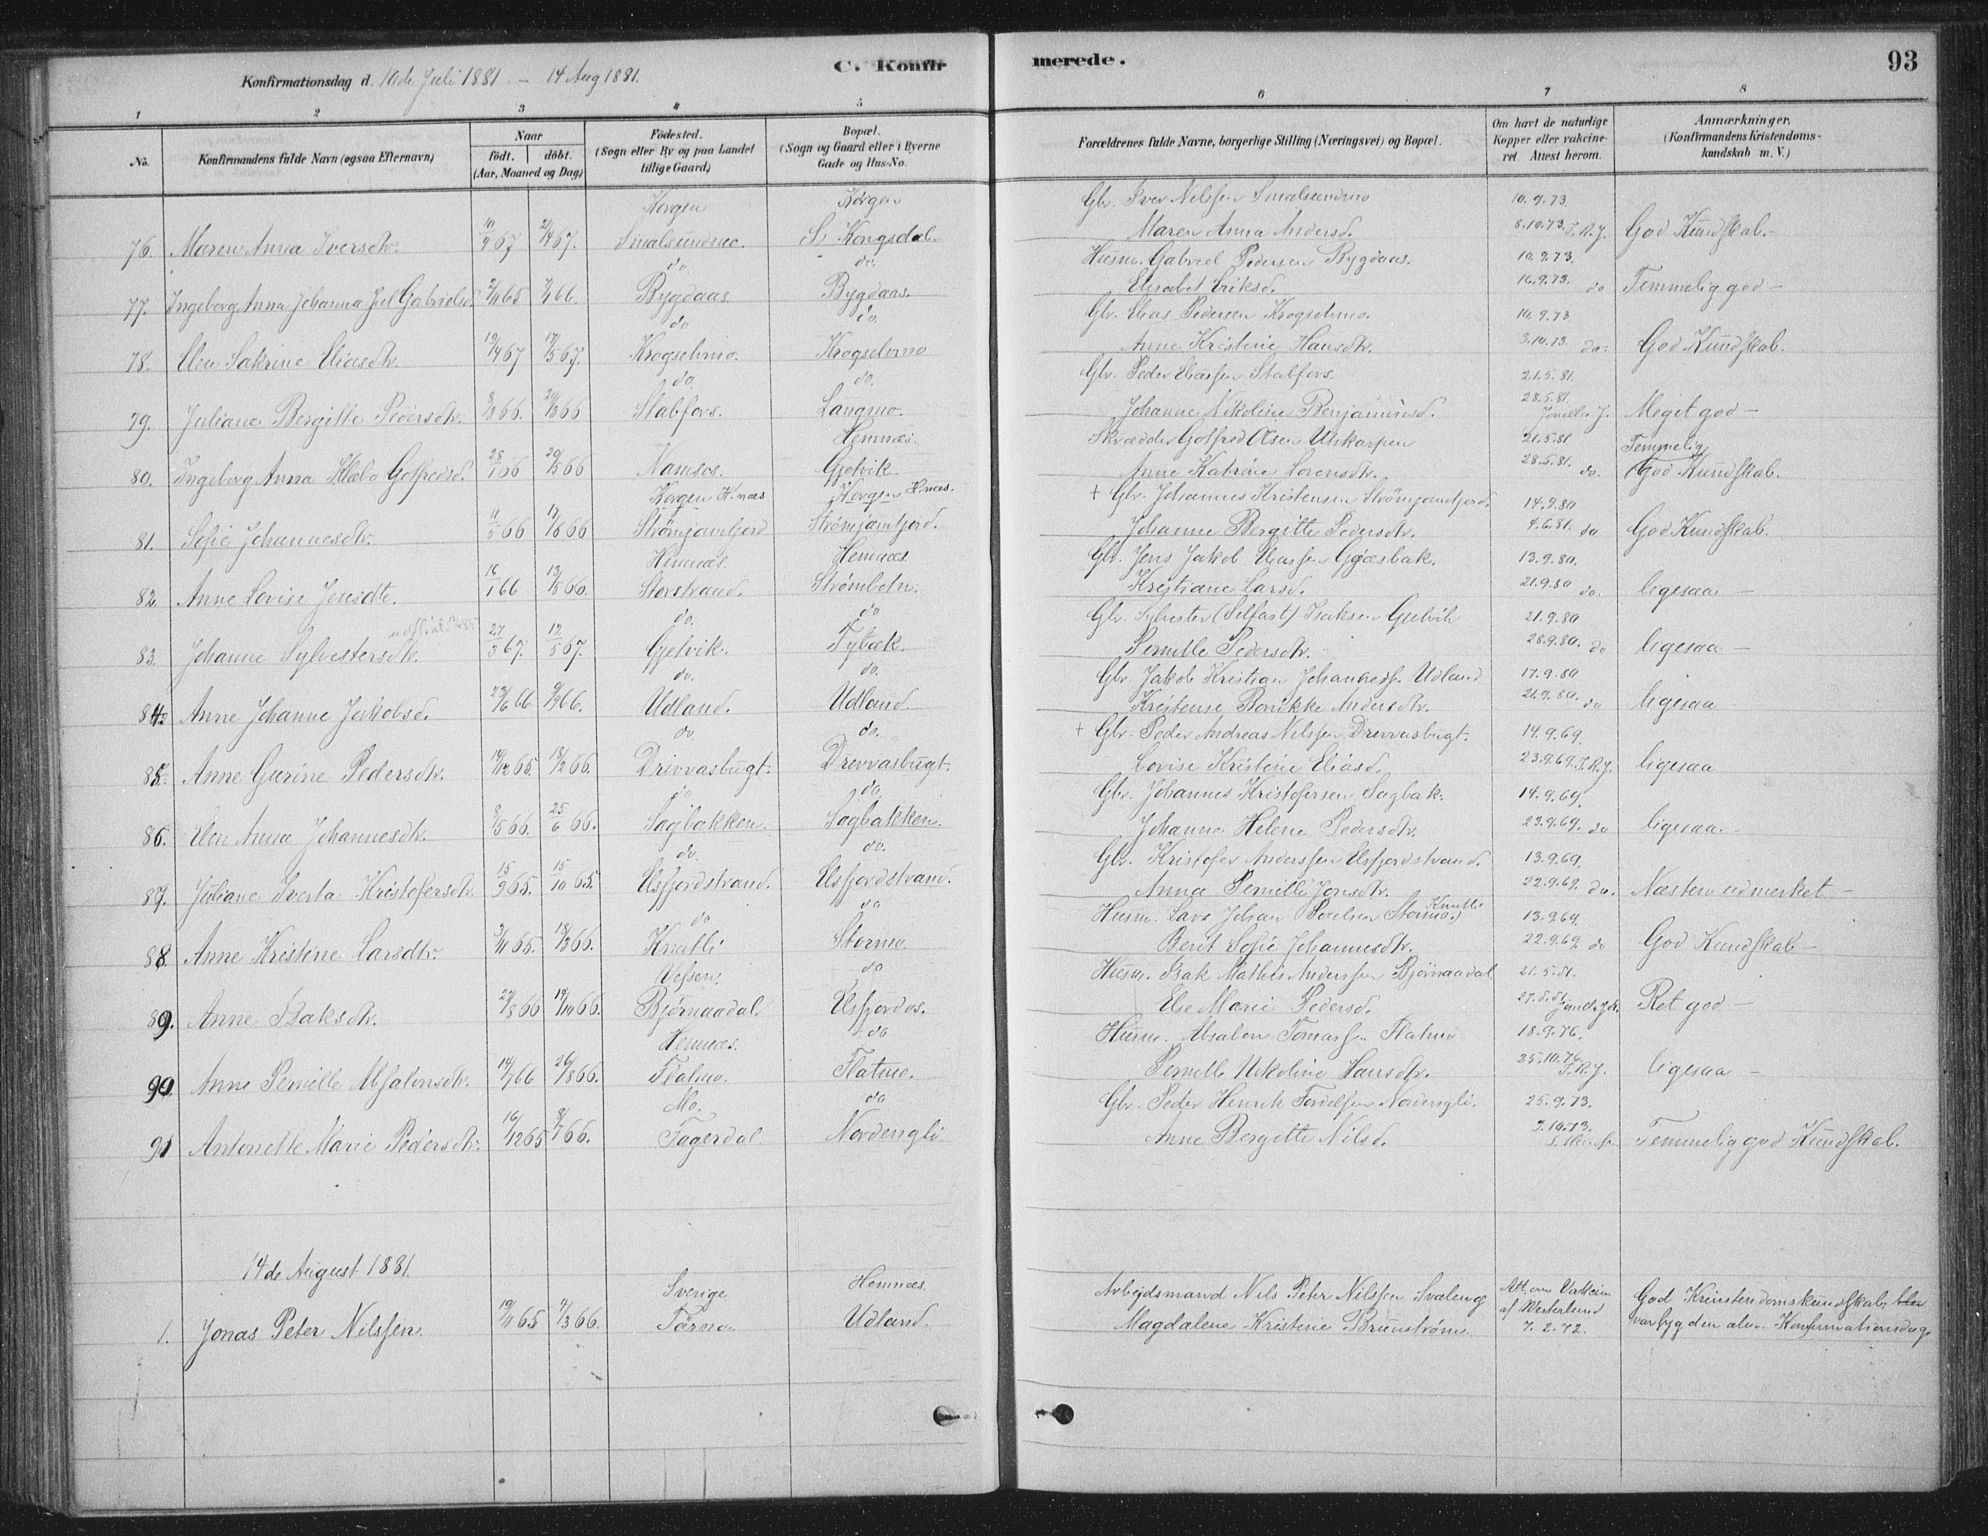 Konfirmationsdag d. 10de Juli 1881 – 14 Aug 1881.
C. Konfir
merede.
93
1 2 3 4 5 6 7 8
No.
Konfirmandens fulde Navn (ogsaa Efternavn)
Naar
födt. döbt.
(Aar, Maaned og Dag)
Födested.
(Sogn eller By og paa Landet
tillige Gaard)
Bopæl.
(Sogn og Gaard eller i Byerne
Gade og Hus-No.
Forældrenes fulde Navne, borgerlige Stilling (Næringsvei) og Bopæl.
Om havt de naturlige
Kopper eller vakcine-
ret Attest herom.
Anmærkninger,
(Konfirmandens Kristendoms-
kundskab m. V.)
Korgen Korgen Gbr. Iver Nilssen Smalsundmo 10.9.73.
76. Maren Anna Iversdtr. 67 67. S. Korgsdal. Maren Anna Andersd. 8.10.73. God Kundskab. –
do do. Husm. Gabriel Pedersen Bygdaas. 10.9.73.
77. Ingeborg Anna Johanna Gabrielsd. 65 66. Bygdaas. Bygdaas. Elisabet Eriksd. 16.9.73. do Temmelig god –
do do. Gbr. Elias Pedersen Krogselvmo. 10.9.73.
78. Elen Katrine Eliasdtr. 19/4 67 17/5 67. Krogselvmo. Krogselvmo Anne Kristine Hansdtr. 3.10.73. do. God Kundskab.
do. do. Gbr. Peder Eliassen Stabfors. 21.5.81.
79. Juliane Bergitte Pedersdtr. 66. 66 Stabfors. Langmo. Johanne Nikoline Benjaminsd. 28.5.81. Meget god –
Hemnæs. Skrædder Gotfred Olsen Utskarpen 21.5.81. Temmelig
80. Ingeborg Anna Klæbo Gotfredsd. 28/1 66 66 Namsos. Gjelvik. Anne Katrine Lorensdtr. 28.5.81. do. God Kundskab.
Korgen H.næs Korgen H.næs. + Gbr. Johannes Kristensen 14.9.80
81. Sofie Johannesdtr. 66 17/6 66 Johanne Bergitte Pedersdtr. 4.6.81. do God Kundskab.
Hemnæs. Hemnæs. Gbr. Jens Jakob Eliassen 13.9.80.
82. Anne Lovise Jensdtr. 16/1 66 66. Storstrand. Strømbotn. Kristiane Larsd. 21.9.80 do. ligesaa –
do. do Gbr. Sylvester (Selfast) Isaksen Gjelvik 21.9.80
83. Johanne Sylvestersdtr. 27/3 67. 12/5 67. Gjelvik. Fybæk. Pernille Pedersdtr. – 28.9.80. do ligesaa –
do. do. Gbr. Jakob Kristian Johanness. Udland 17.9.80
84. Anne Johanne Jakobsd. 23/6 66 66. Udland. Udland. Kristense Andersdtr. 21.9.80. do ligesaa –
do. do. + Gbr. Peder Andreas Nilssen Drevvasbugt. 14.9.69.
85. Anne Gurine Pedersdtr. 14/12 65. 18/2 66. Drevvasbugt. Drevvasbugt. Lovise Kristine Eliasd. 23.9.69. ligesaa
do do. Gbr. Johannes Kristofersen Sagbak. 14.9.69.
86. Elen Anna Johannesdtr. 66. 25/6 66. Sagbakken. Sagbakken. Johanna Helene Pedersdtr. 23.9.69. do ligesaa. –
do. do. Gbr. Kristofer Anderssen Elsfjordstrand. 13.9.69.
87. Juliane Sverta Kristofersdtr. 15/9 65. 15/10 65. Elsfjordstrand. Elsfjordstrand. Anna Pernille Jonsdtr. 22.9.69. do. Næsten udmerket –
do do Husm. Lars Johan Stormo. 13.9.69.
88. Anne Kristine Larsdtr. 3/11 65. 18/3 66. Knutli Stormo Berit Sofie Johannesdtr. 22.9.69. do God Kundskab –
Vefsen. do Husm. Isak Mathis Anderssen Bjørnaadal 21.5.81.
89. Anne Isaksdtr. 27/8 66 14/10 66. Bjørnaadal. Elsfjordos. Else Marie Pedersd. Ret god –
Hemnæs. do Husm. Absalon Tomass. Flatmo 18.9.76.
90. Anne Pernille Absalonsdtr. 14/7 66 26/8 66. Flatmo. Flatmo. Pernille Nikoline Hansdtr. 25.10.76. ligesaa –
Mo. do Gbr. Peder Henrik Nordengli. 25.9.73.
91 Antonette Marie Pedersdtr. 16/12 65 66. Fagerdal Nordengli Anne Bergitte Nilsd. 3.10.73. Temmelig god Kundskab.
14de August 1881.
Sverige Hemnæs. Arbejdsmand Nils Peter Nilssen Att. om Vakcin God Kristendomskundskab,
1. Jonas Peter Nilssen. 19/11 65 66. Tärna. Udland. Magdalene Kristine Brunström. af Westerlund var syg den alm. Konfirmationsdag
7.2.72.